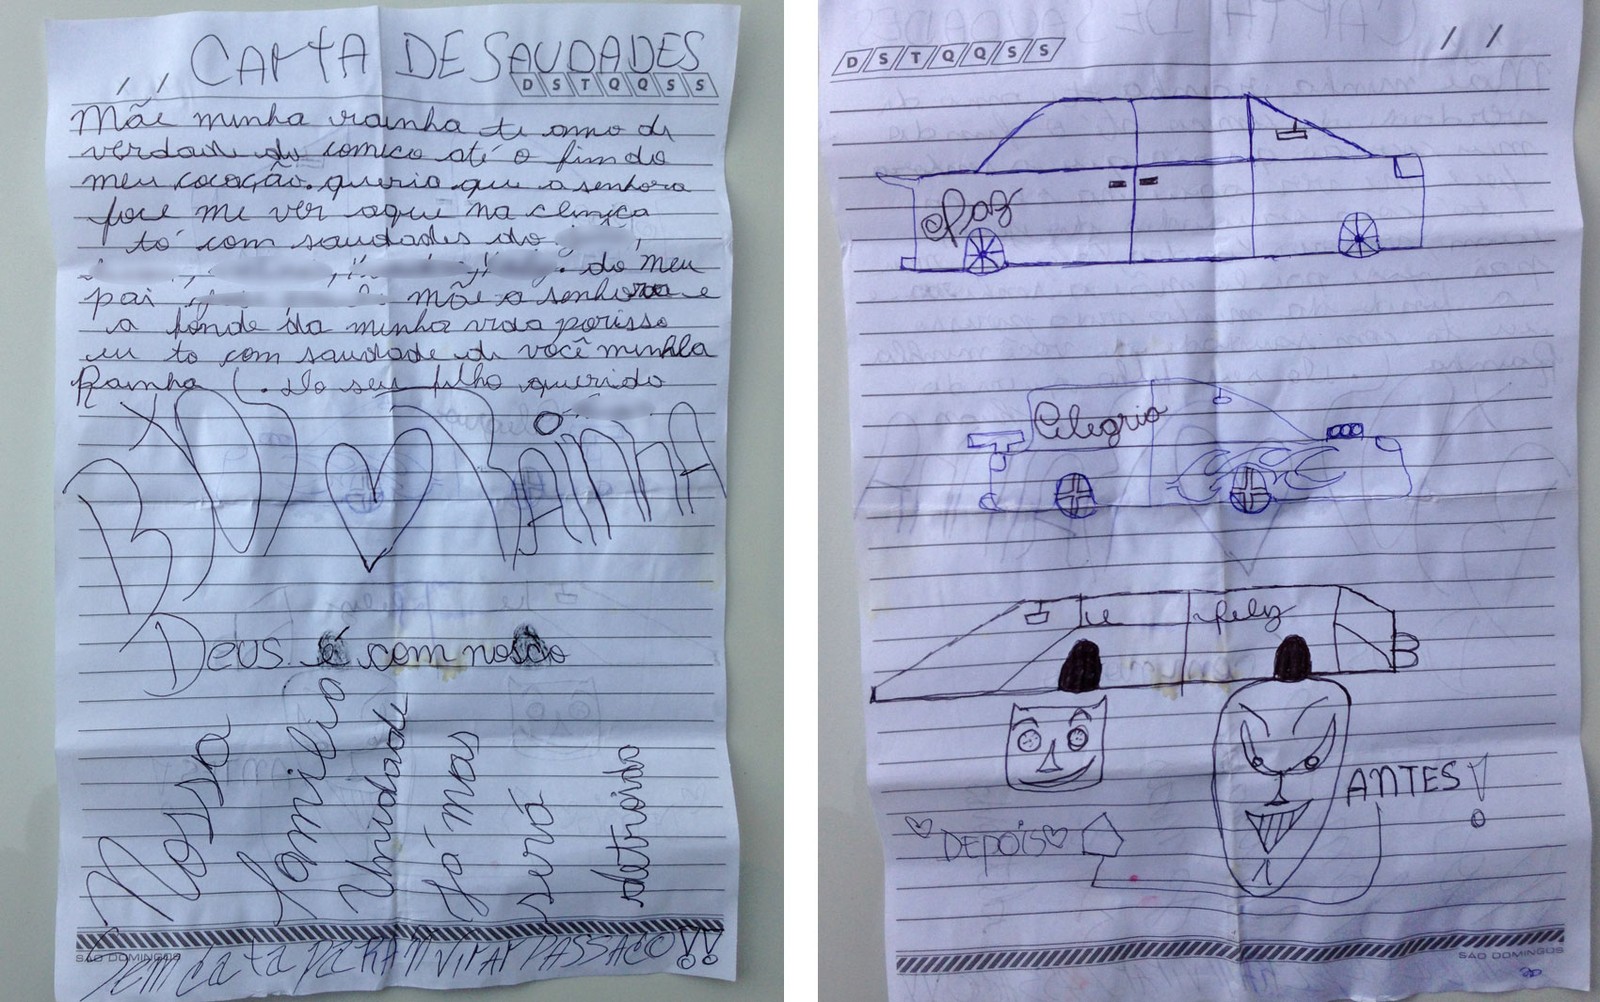 CARTA DE SAUDADES
D S T Q Q S S
Mãe minha rainha te amo de
verdade do comico até o fim do
meu cocação. queria que a senhora
fose me ver aqui na clinica
tó com saudades do
do meu
pai mãe a senhora e
a fonde da minha vida porisso
eu to com saudade de você minhla
Rainha (. do seu filho querido
RAinhA
Deus é com nosco
Nossa
familia
Unidade
Já mas
será
detroida
SÃO DOMINGOS
Sem data PARA VirAr PASSADO!!
D S T Q Q S S
/ /
Paz
Alegria
feliz
ANTES!
DEPOIS
SÃO DOMINGOS